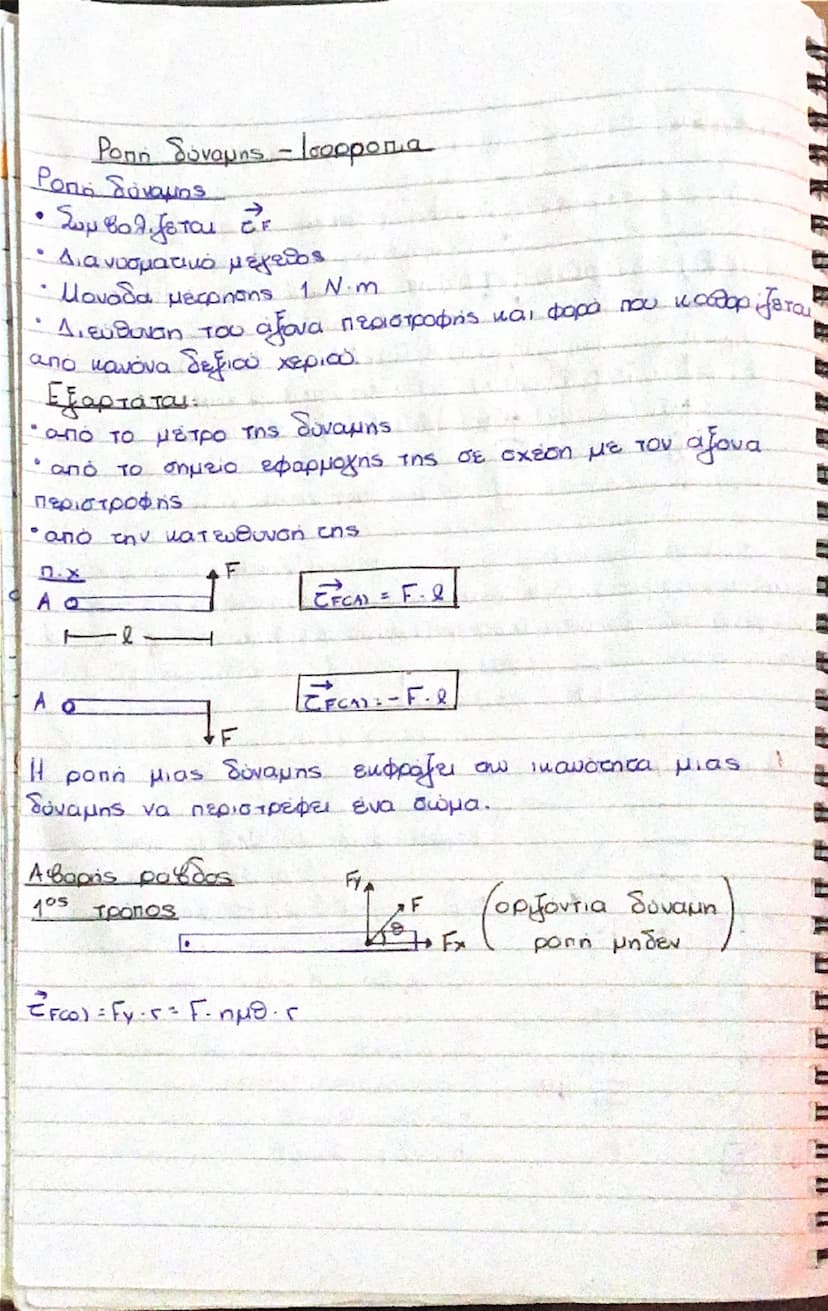 Ροπή δύναμης - Ισορροπία
Ροπή δύναμης
• Συμβολίζεται τ⃗F
• Διανυσματικό μέγεθος
• Μονάδα μέτρησης 1 N·m
• Διεύθυνση του άξονα περιστροφής και φορά που καθορίζεται
από κανόνα δεξιού χεριού.
Εξαρτάται:
• από το μέτρο της δύναμης
• από το σημείο εφαρμογής της σε σχέση με τον άξονα
περιστροφής
• από την κατεύθυνσή της
π.χ
F
A
τ⃗F(A) = F·l
l
A
τ⃗F(A) = -F·l
F
Η ροπή μιας δύναμης εκφράζει την ικανότητα μιας
δύναμης να περιστρέφει ένα σώμα.
Αβαρής ράβδος
1ος τρόπος
Fy
F
θ
Fx
(οριζόντια δύναμη
ροπή μηδέν)
τ⃗F(O) = Fy·r = F·ημθ·r